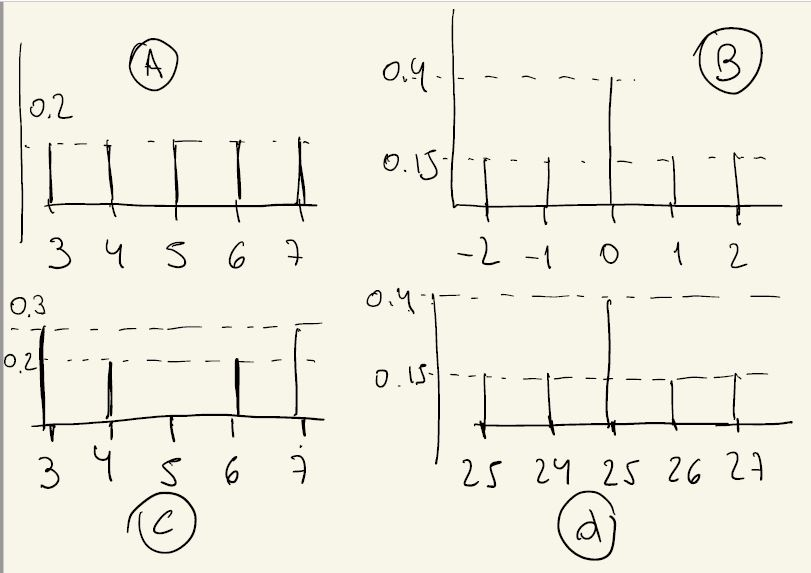 A
0.2
3 4 5 6 7
B
0.4
0.15
-2 -1 0 1 2
0.3
0.2
3 4 5 6 7
C
0.4
0.15
25 24 25 26 27
d